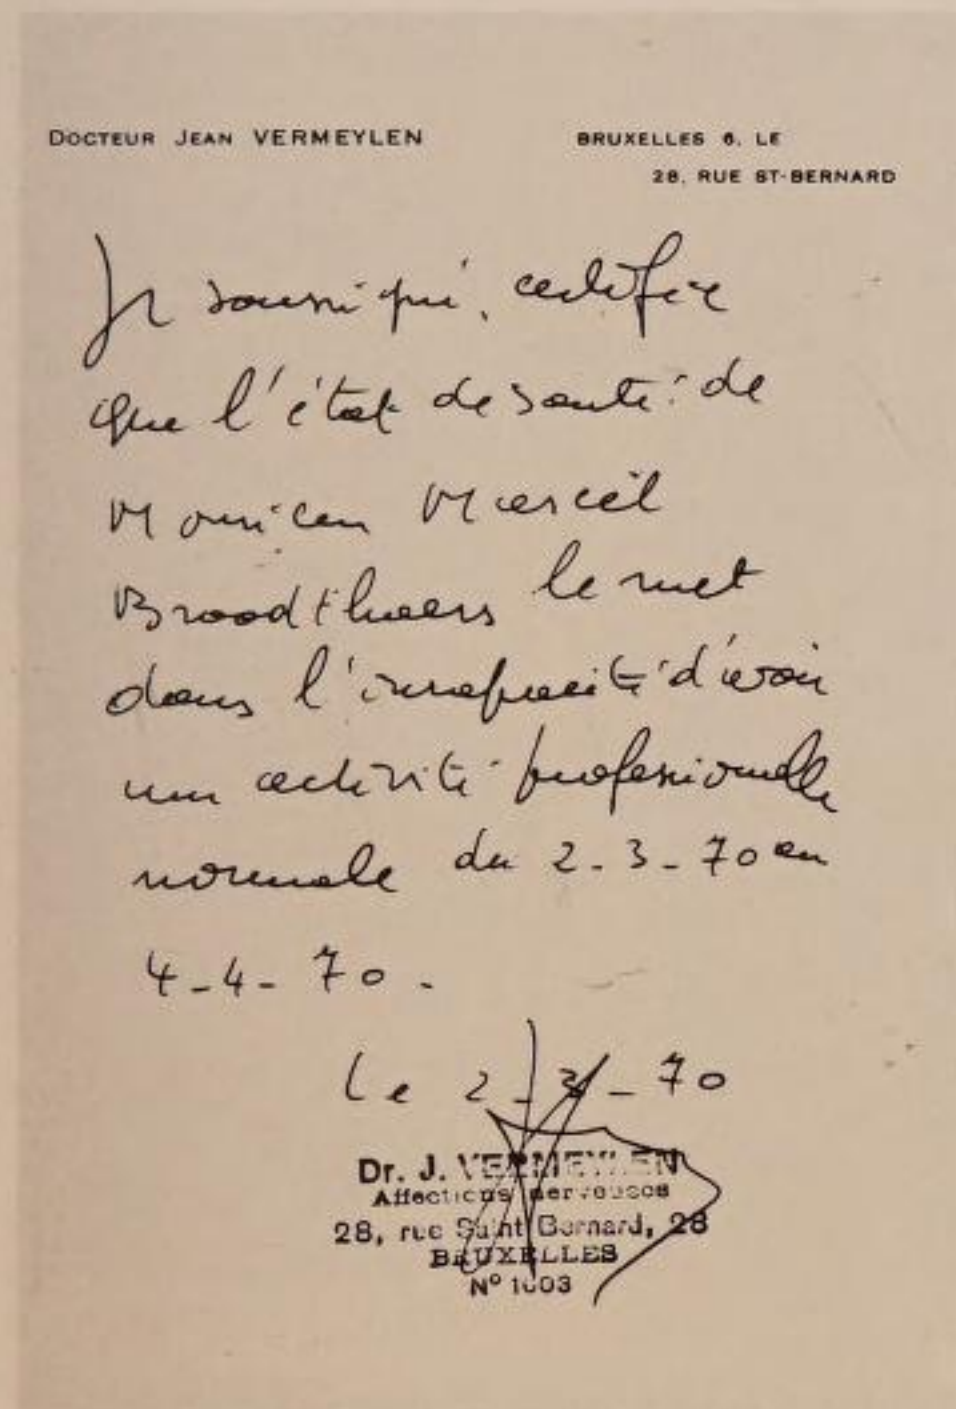 DOCTEUR JEAN VERMEYLEN
BRUXELLES 6, LE
28, RUE ST-BERNARD
Je soussigné, certifie
que l'état de santé de
Monsieur Marcel
Broodthaers le met
dans l'incapacité d'avoir
une activité professionnelle
normale du 2-3-70 au
4-4-70.
Le 2-3-70
Dr. J. VERMEYLEN
Affections nerveuses
28, rue Saint Bernard, 28
BRUXELLES
Nº 1003